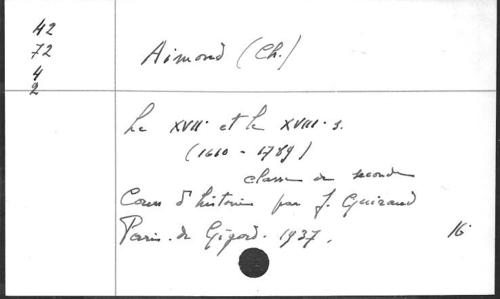 42
72
4
2
Aimond (Ch.)
Le XVII. et le XVIII. s.
(1610 - 1789)
classe de seconde
Cours d'histoire par J. Guiraud
Paris. de Gigord. 1937.
16